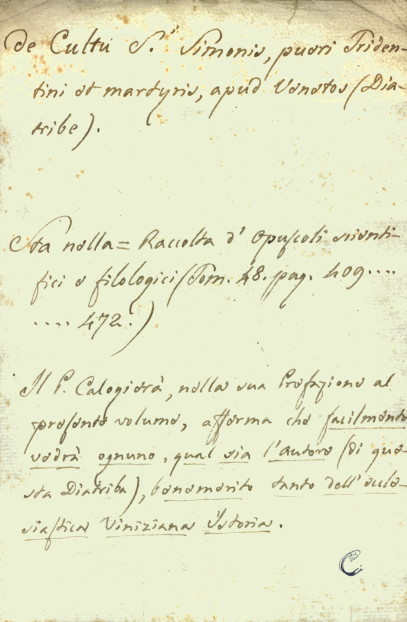 De Cultu S.ⁱ Simonis, pueri Triden-
tini et martyris, apud Venetos (Dia-
tribe).
Sta nella = Raccolta d' Opuscoli scienti-
fici e filologici (Tom. 48. pag. 409....
.... 472.)
Il P. Calogierà, nella sua Prefazione al
presente volume, afferma che facilmente
vedrà ognuno, qual sia l'autore (di que-
sta Diatriba), benemerito tanto dell'eccle-
siastica Viniziana istoria.
C